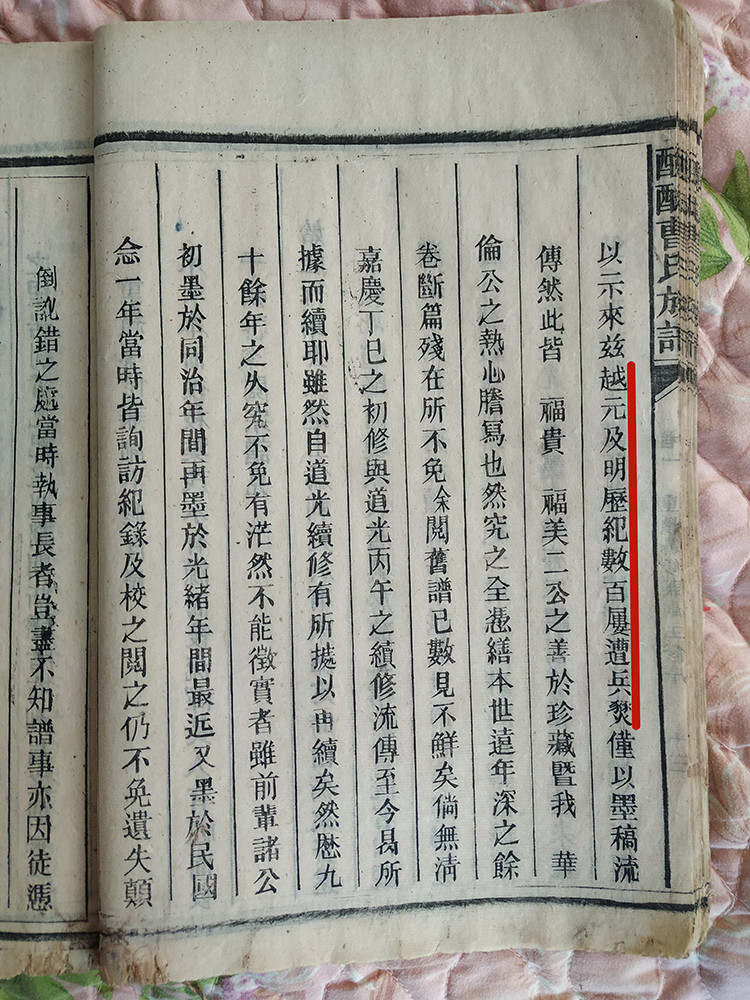 曹氏族譜
以示來玆越元及明歷紀數百屢遭兵燹僅以墨稿流
傳然此皆 福貴 福美二公之善於珍藏暨我 華
倫公之熱心謄寫也然究之全憑繕本世遠年深之餘
卷斷篇殘在所不免余閱舊譜已數見不鮮矣倘無清
嘉慶丁巳之初修與道光丙午之續修流傳至今曷所
據而續耶雖然自道光續修有所據以再續矣然歷九
十餘年之久究不免有茫然不能徵實者雖前輩諸公
初墨於同治年間再墨於光緒年間最近又墨於民國
念一年當時皆詢訪紀錄及校之閱之仍不免遺失顛
倒訛錯之處當時執事長者豈盡不知譜事亦因徒憑